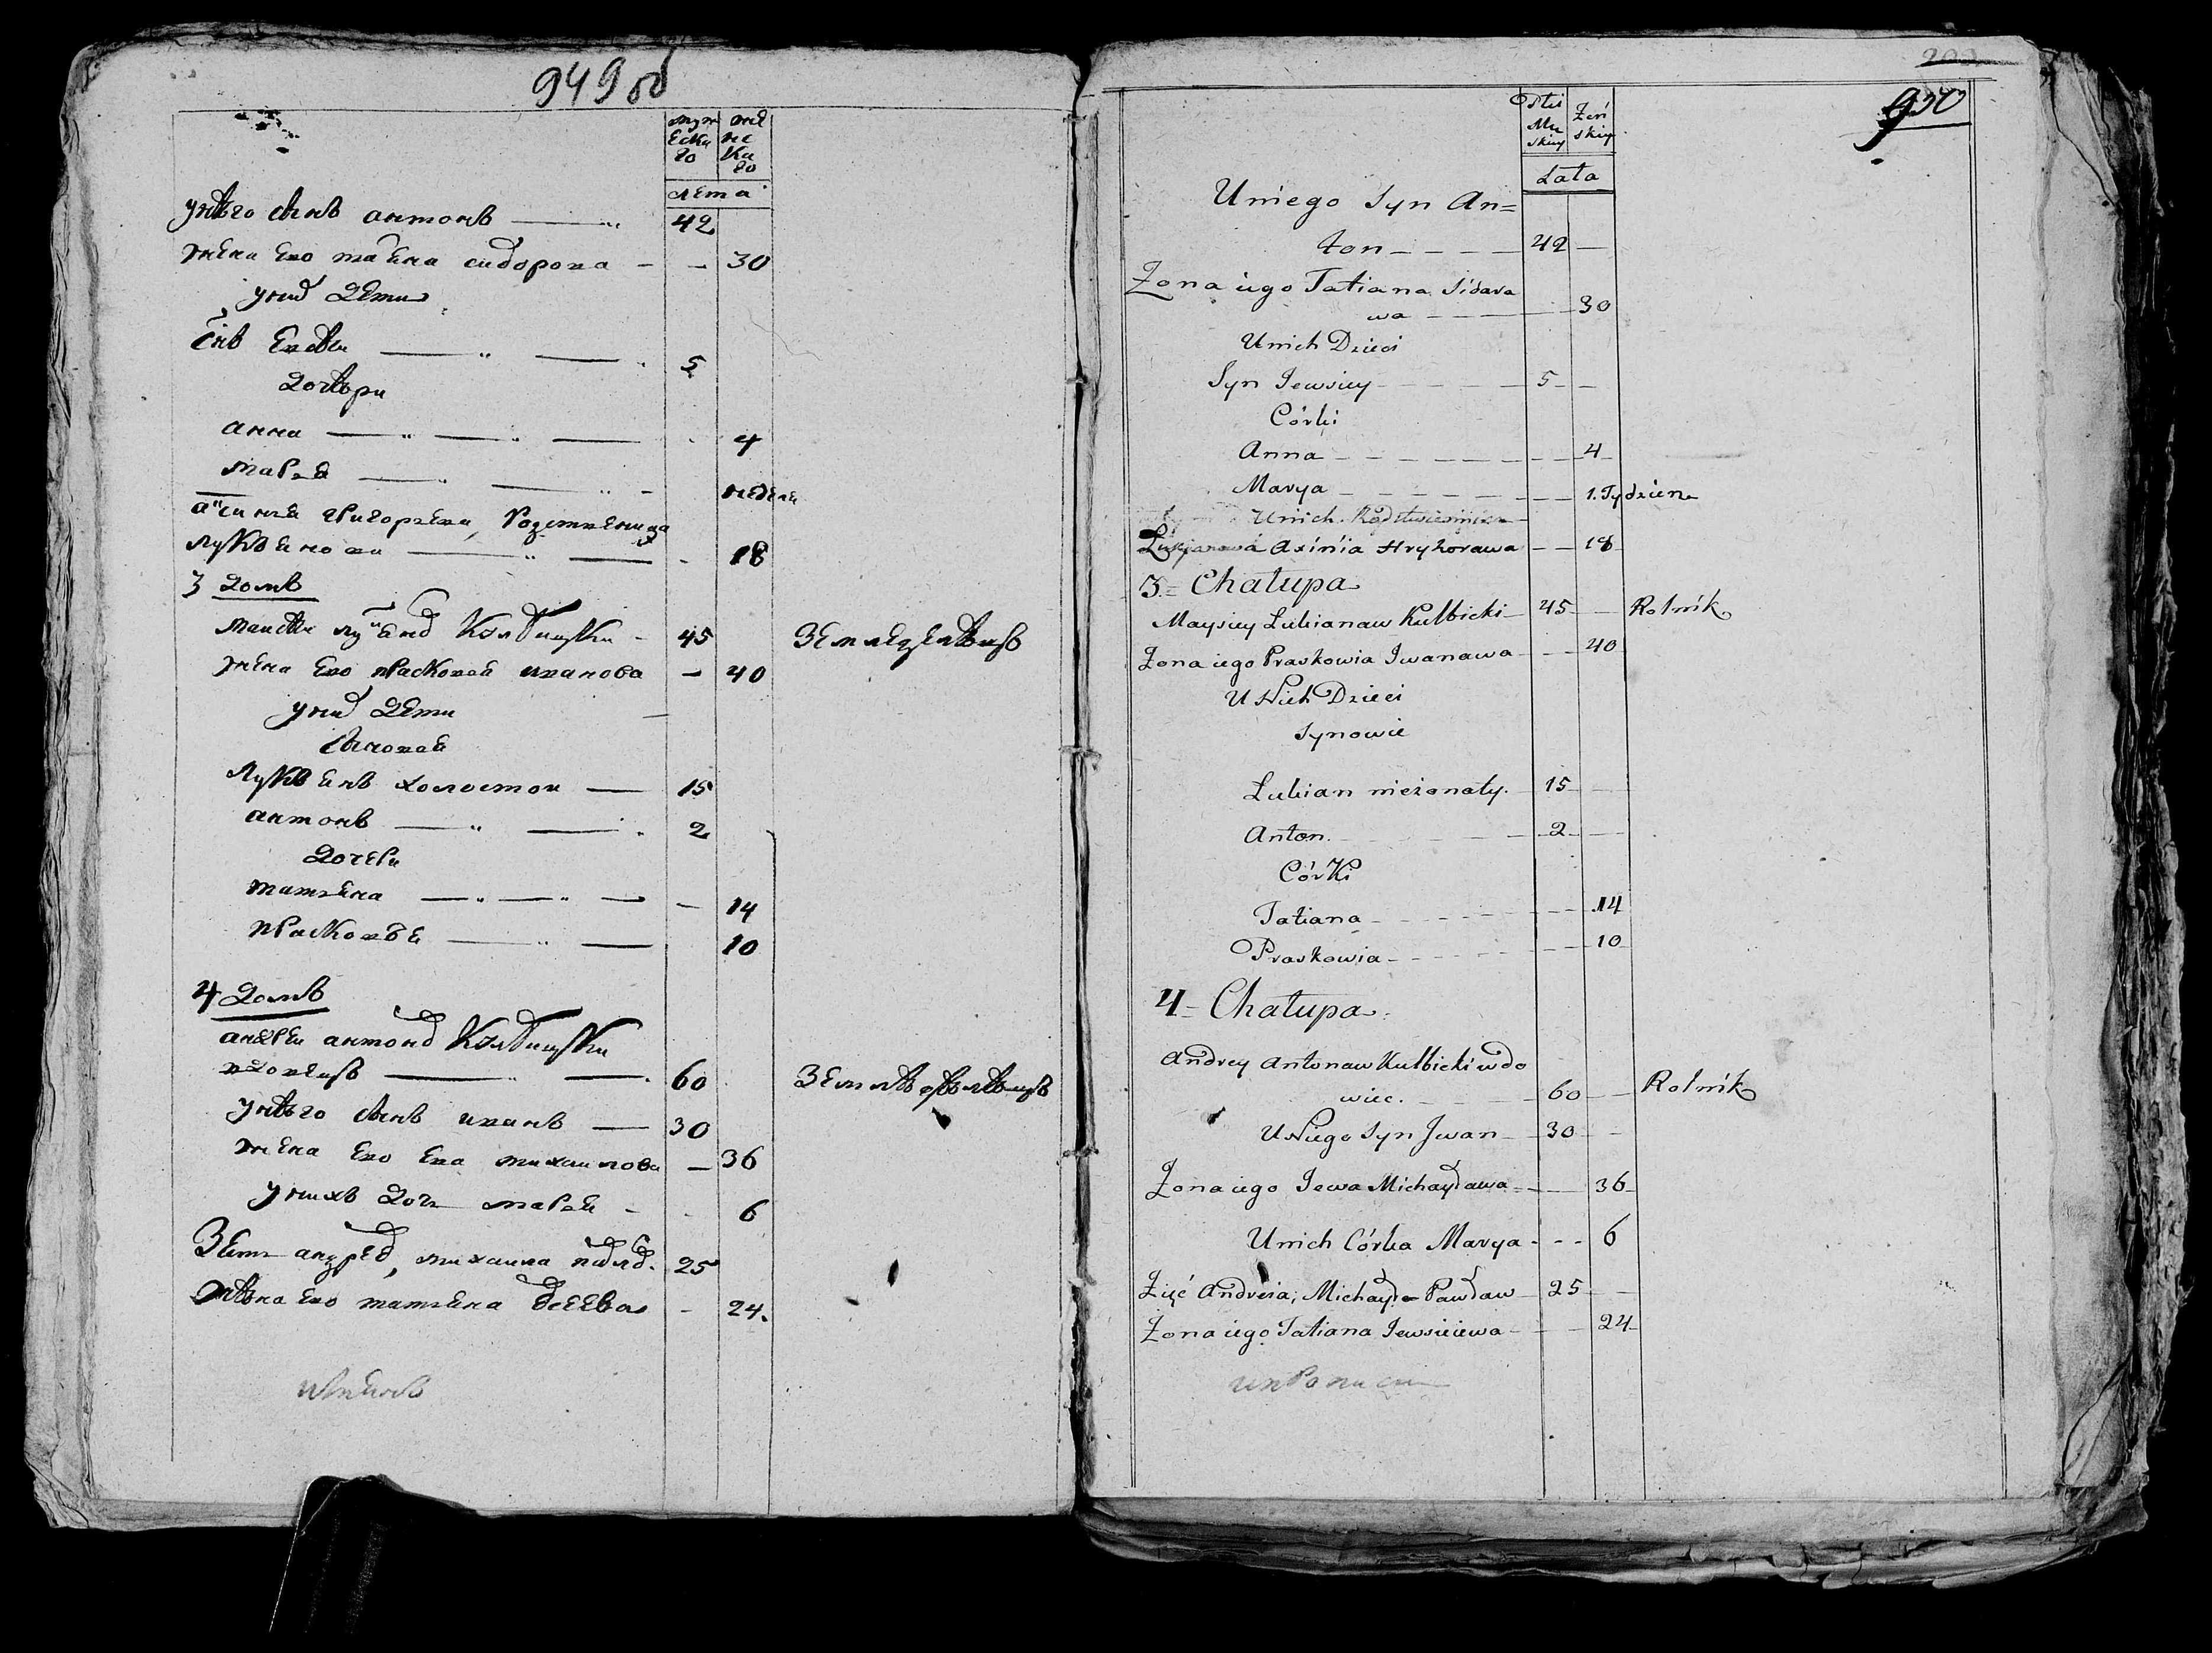 949 об
муж еска го
же нс ка го
лета
унѣго сынъ антонъ 42
жена ево татьена сидорова 30
уних дети
сынъ Евсѣи 5
дочѣри
анна 4
марья неделя
аксинья григорьева, Родственница
лукъенова 18
3 домъ
маисѣи лукьено Кулбицки 45 Земледелѣцъ
жена ево прасковья иванова 40
уних дети
сыновья
лукъенъ холостои 15
антонъ 2
дочери
татьена 14
прасковья 10
4 домъ
андреи антоно Кулбицки
вдовецъ 60
унѣго сынъ иванъ 30
жена ево ева михаилова 36
унихъ дочь марья 6
Зеть андрея, михаила павлов 25
жѣна ево татьена 24.
209
950
Płci Mu skiey
Żeń skiey
Lata
Uniego Syn An=
ton 42
Żona iego Tatiana Sidara
wa 30
Unich Dzieci
Syn Jewsiey 5
Córki
Anna 4
Marya 1. Tydzien
Unich
Łukjanawa Axińia Hryhorawa 18
3= Chałupa
Maysiey Łukianaw Kulbicki 45 Rolnik
Żona iego Praskowia Iwanawa 40
U Nich Dzieci
Synowie
Łukian nieżonaty 15
Anton 2
Córki
Tatiana 14
Praskowia 10
4= Chałupa
Andrey Antonaw Kulbicki wdo
wiec. 60 Rolnik
U Niego Syn Jwan 30
Żona iego Jewa Michayławа 36
Unich Córka Marya 6
Zięć Andreia, Michayła Pawław 25
Żona iego Tatiana Jewsieiewa 24